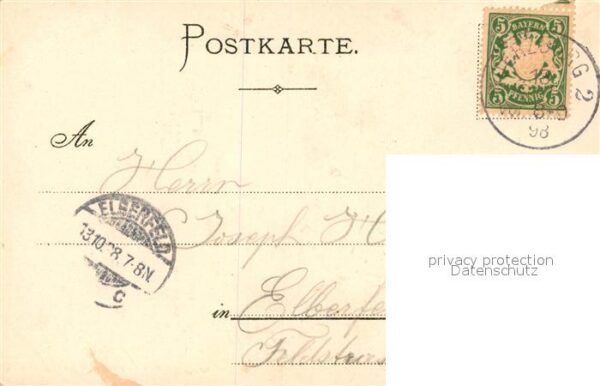 POSTKARTE.
5 BAYERN 5
5 PFENNIG 5
2
98
An
Herrn
Joseph H
ELBERFELD
13.10.98.7-8N.
C
in Elberfe
privacy protection
Datenschutz